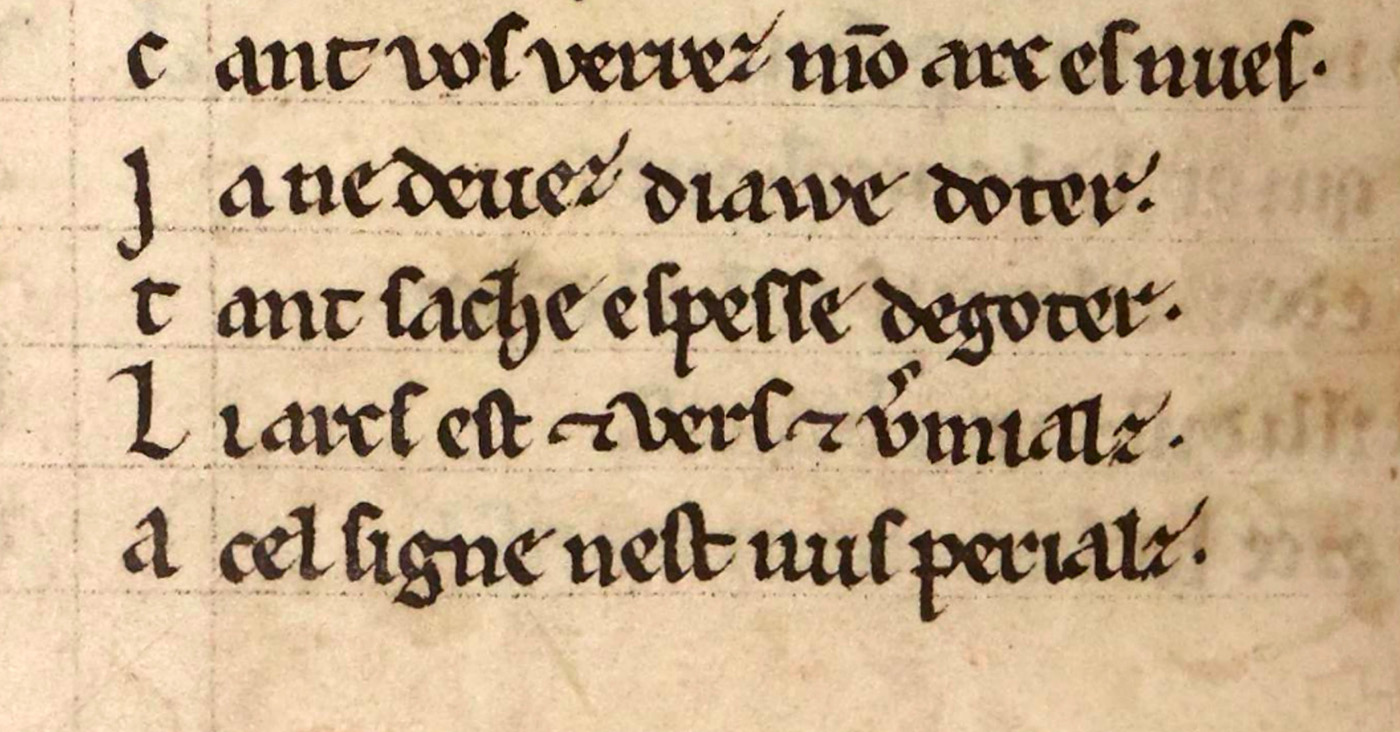 c ant vos verrez mo̅ arc es nues.
J a ne deuez diawe doter.
t ant sache espesse degoter.
L i arcs est ⁊ vers ⁊ vͬmialz.
a cel signe nest nus perialz.